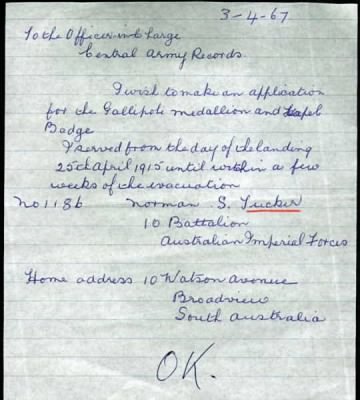 3-4-67
To the Officer in Charge
Central Army Records.
I wish to make an application
for the Gallipoli medallion and Lapel
Badge
I served from the day of the landing
25th April 1915 until within a few
weeks of the evacuation
No 1186 Norman S. Tucker
10 Battalion
Australian Imperial Forces
Home address 10 Watson Avenue
Broadview
South Australia
OK.